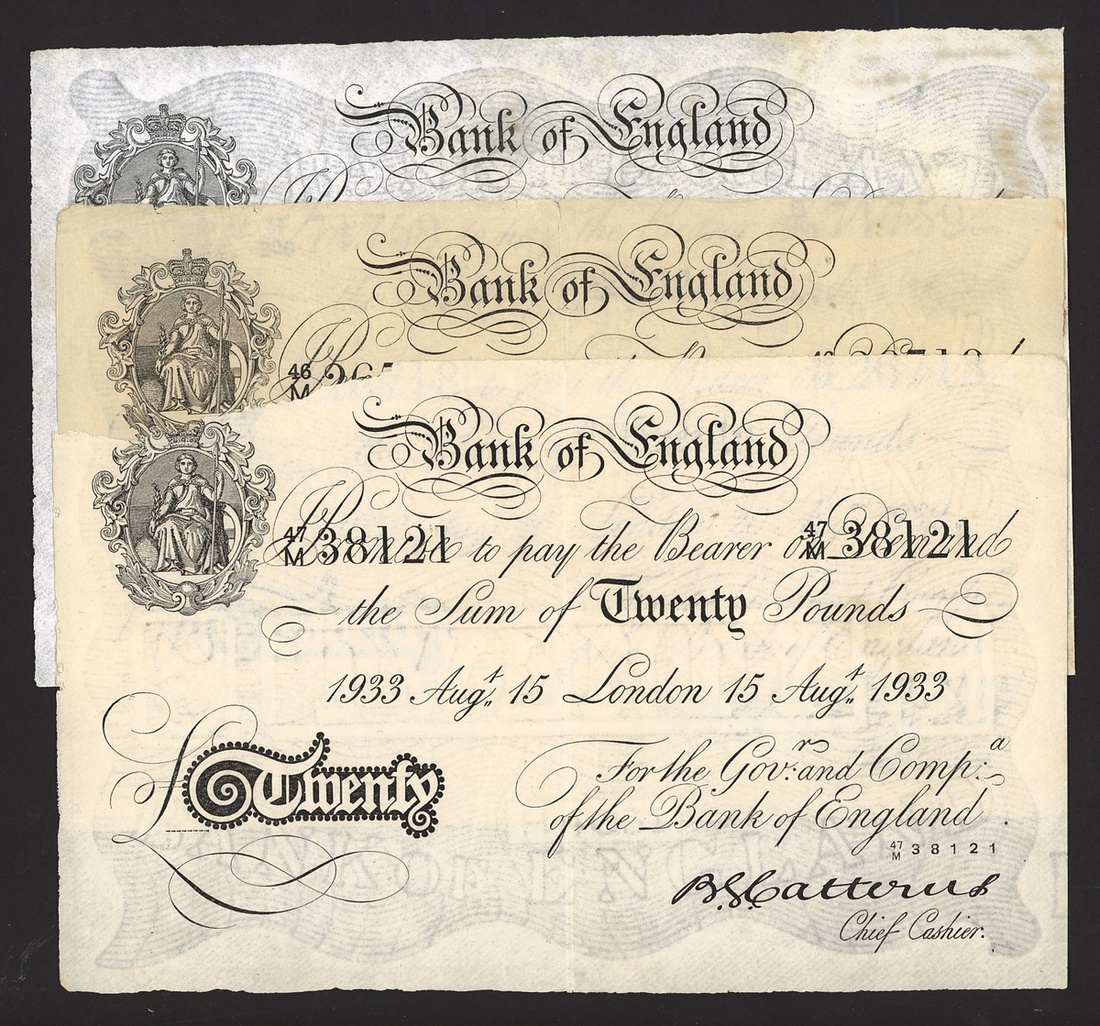 Bank of England
Bank of England
46
M
Bank of England
47 M 38121 47 M 38121
to pay the Bearer on Demand
the Sum of Twenty Pounds
1933 Augt. 15 London 15 Augt. 1933
£Twenty
For the Govr: and Compa:
of the Bank of England.
47 M 38121
B.G. Catterns
Chief Cashier.